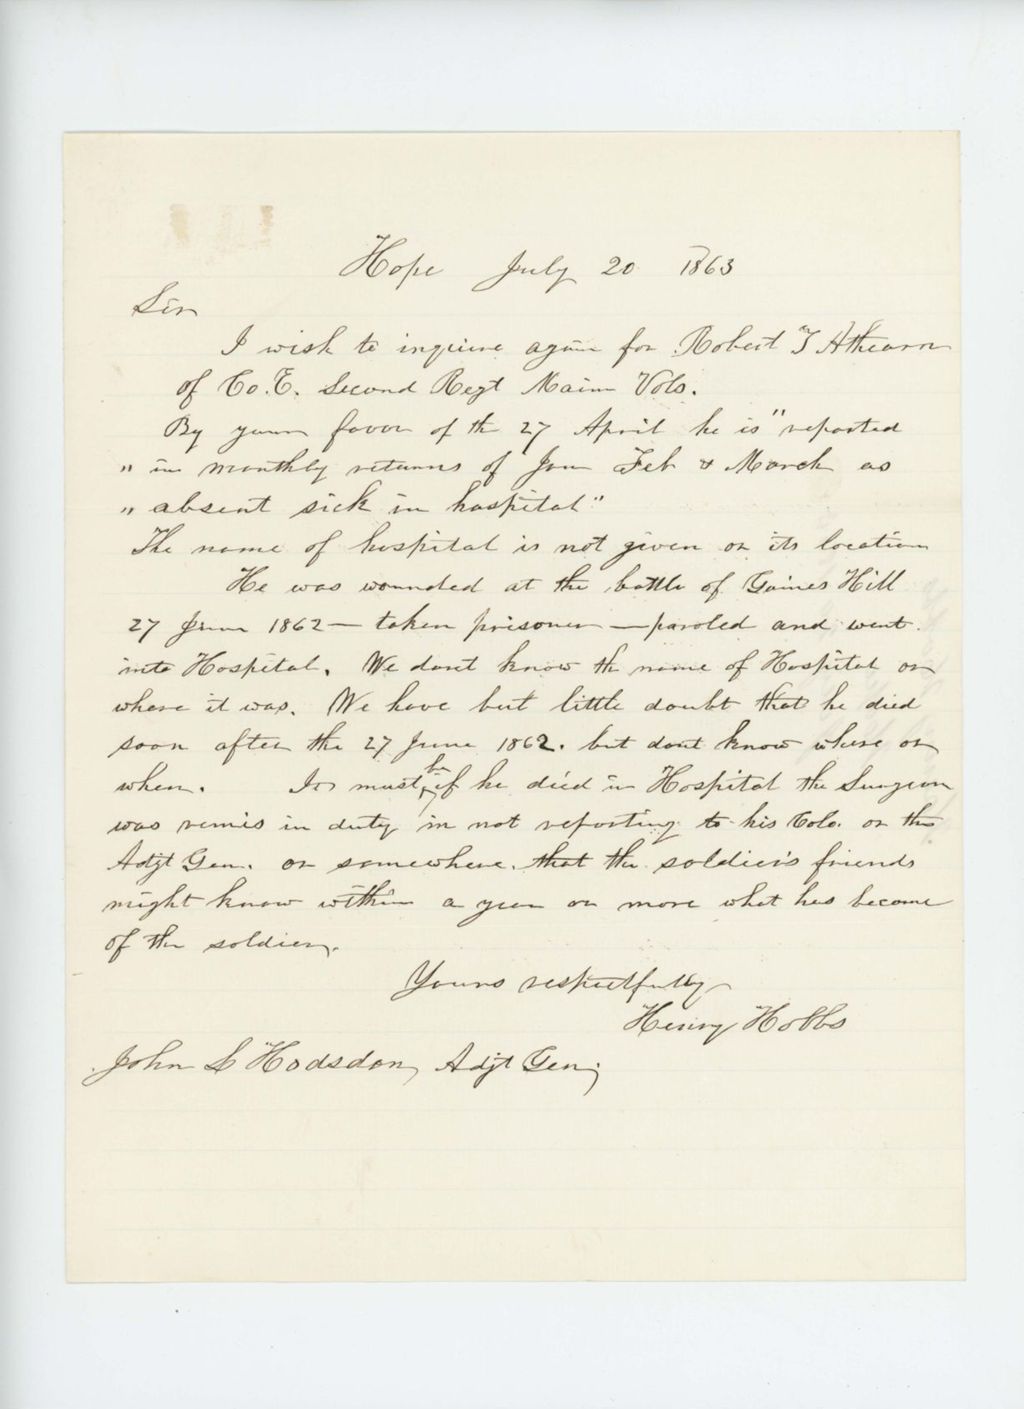 Hope July 20 1863
Sir
I wish to inquire again for Robert T Athearn
of Co. E. Second Regt Maine Vols.
By your favor of the 27 April he is "reported
" in monthly returns of Jan Feb & March as
" absent sick in hospital"
The name of hospital is not given or its location
He was wounded at the battle of Gaines Hill
27 June 1862 — taken prisoner — paroled and went
into Hospital. We dont know the name of Hospital or
where it was. We have but little doubt that he died
soon after the 27 June 1862. but dont know where or
when. It must be if he died in Hospital the Surgeon
was remis in duty in not reporting to his Colo. or the
Adjt Gen. or somewhere. that the soldier's friends
might know within a year or more what has become
of the soldier.
Yours respectfully
Henry Hobbs
John L Hodsdon, Adjt Gen;